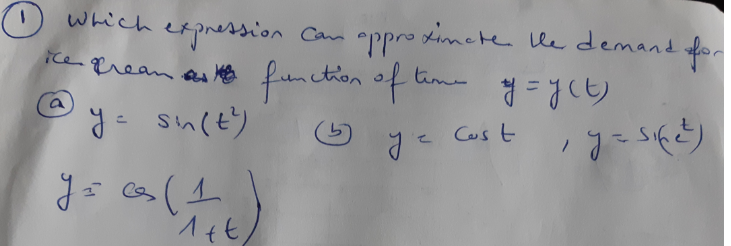 ① Which expression can approximate the demand for
ice cream as function of time y = y(t)
ⓐ y = sin(t²) ⓑ y = cos t , y = sin(e^t)
y = cos(1/(1+t))